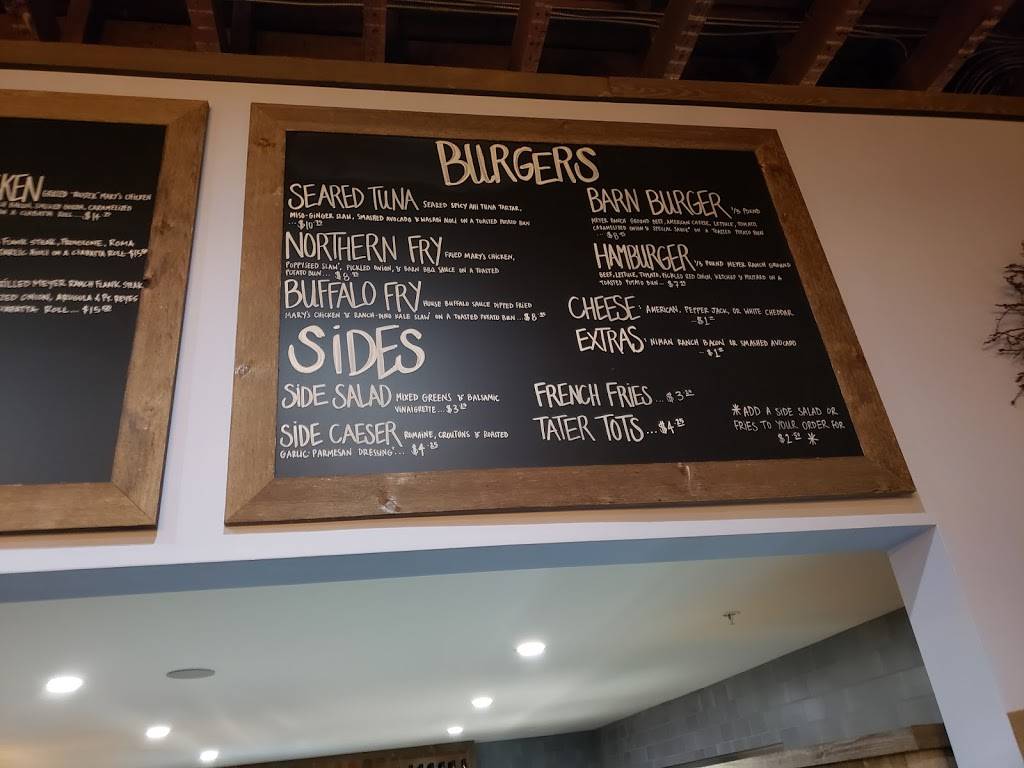 KEN GRILLED "ROCKY" MARY'S CHICKEN
ONION, CARAMELIZED
ON A CIABATTA ROLL ...$14.
FLANK STEAK, PROVOLONE, ROMA
GARLIC AIOLI ON A CIABATTA ROLL $15
GRILLED MEYER RANCH FLANK STEAK
ONION, ARUGULA & PT. REYES
CIABATTA ROLL... $15
BURGERS
SEARED TUNA SEARED SPICY AHI TUNA TARTAR,
MISO-GINGER SLAW, SMASHED AVOCADO & WASABI AIOLI ON A TOASTED POTATO BUN
...$10
NORTHERN FRY FRIED MARY'S CHICKEN,
POPPYSEED SLAW, PICKLED ONION, & BARN BBQ SAUCE ON A TOASTED
POTATO BUN... $8
BUFFALO FRY HOUSE BUFFALO SAUCE DIPPED FRIED
MARY'S CHICKEN & RANCH-DINO KALE SLAW ON A TOASTED POTATO BUN...$8
BARN BURGER 1/3 POUND
MEYER RANCH GROUND BEEF, AMERICAN CHEESE, LETTUCE, TOMATO,
CARAMELIZED ONION & SPECIAL SAUCE" ON A TOASTED POTATO BUN
...$8
HAMBURGER 1/3 POUND MEYER RANCH GROUND
BEEF, LETTUCE, TOMATO, PICKLED RED ONION, KETCHUP & MUSTARD ON A
TOASTED POTATO BUN... $7
CHEESE: AMERICAN, PEPPER JACK, OR WHITE CHEDDAR
-$1
EXTRAS: NIMAN RANCH BACON OR SMASHED AVOCADO
- $1
SIDES
SIDE SALAD MIXED GREENS & BALSAMIC
VINAIGRETTE...$3
SIDE CAESER ROMAINE, CROUTONS & ROASTED
GARLIC-PARMESAN DRESSING... $4
FRENCH FRIES...$3
TATER TOTS...$4
*ADD A SIDE SALAD OR
FRIES TO YOUR ORDER FOR
$2 *